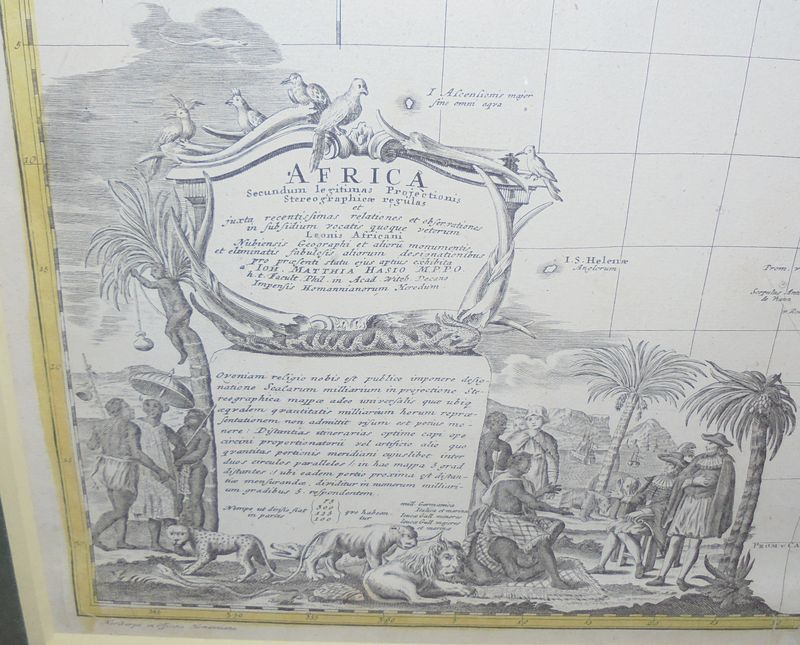 5
I Ascensionis major
sine omni aqva
10
AFRICA
Secundum legitimas Projectionis
Stereographicæ regulas
et
juxta recentissimas relationes et observationes
in subsidium vocatis quoque veterum
Leonis Africani
Nubiensis Geographi et aliorũ monumentis
et eliminatis fabulosis aliorum designationibus
pro præsenti statu ejus aptius exhibita
a IOH. MATTHIA HASIO M.P.P.O.
h.t. Facult. Phil. in Acad. Witeb. Decano
Impensis Homannianorum Heredum
I.S. Helenæ
Anglorum
15
Prom.
20
Qvoniam religio nobis est publice imponere desig-
natione Scalarum milliarium in projectione Ste-
reographica mappæ adeo universalis quæ ubiq
æqvalem qvantitatis milliarium horum repræ-
sentationem non admittit visum est potius mo-
nere: Distantias itinerarias optime capi ope
circini proportionatorii vel artificio alio quo
qvantitas portionis meridiani cujuslibet inter
duos circulos parallelos (: in hac mappa 5 grad
distantes :) ubi eadem portio proxima est distan-
tiæ mensurandæ, dividitur in numerum milliari-
um gradibus 5. respondentem.
Nempe ut divisio fiat
in partes
75
300
125
100
quo habean-
tur
mill. Germanica
Italica et marina
leucæ Gall.
leucæ Gall. majores
et marinæ
PROM. v CA
345
350
355
360
5
10
15
20
25